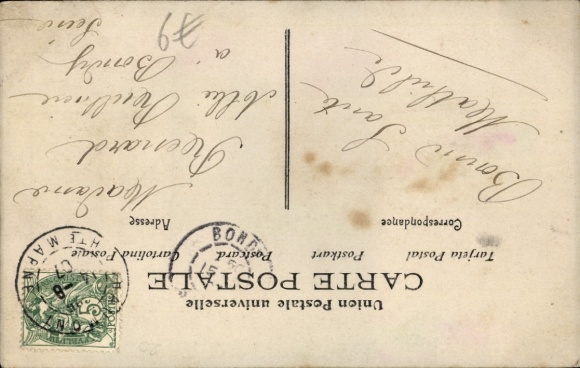 Union Postale universelle
CARTE POSTALE
Tarjeta Postal Postkart Postcard Cartolina Postale
Correspondance
Adresse
Bonne Santé
Mathilde
Madame
Renard
Allée
à Bondy
Seine
BONDY
HTE MARNE
5
67